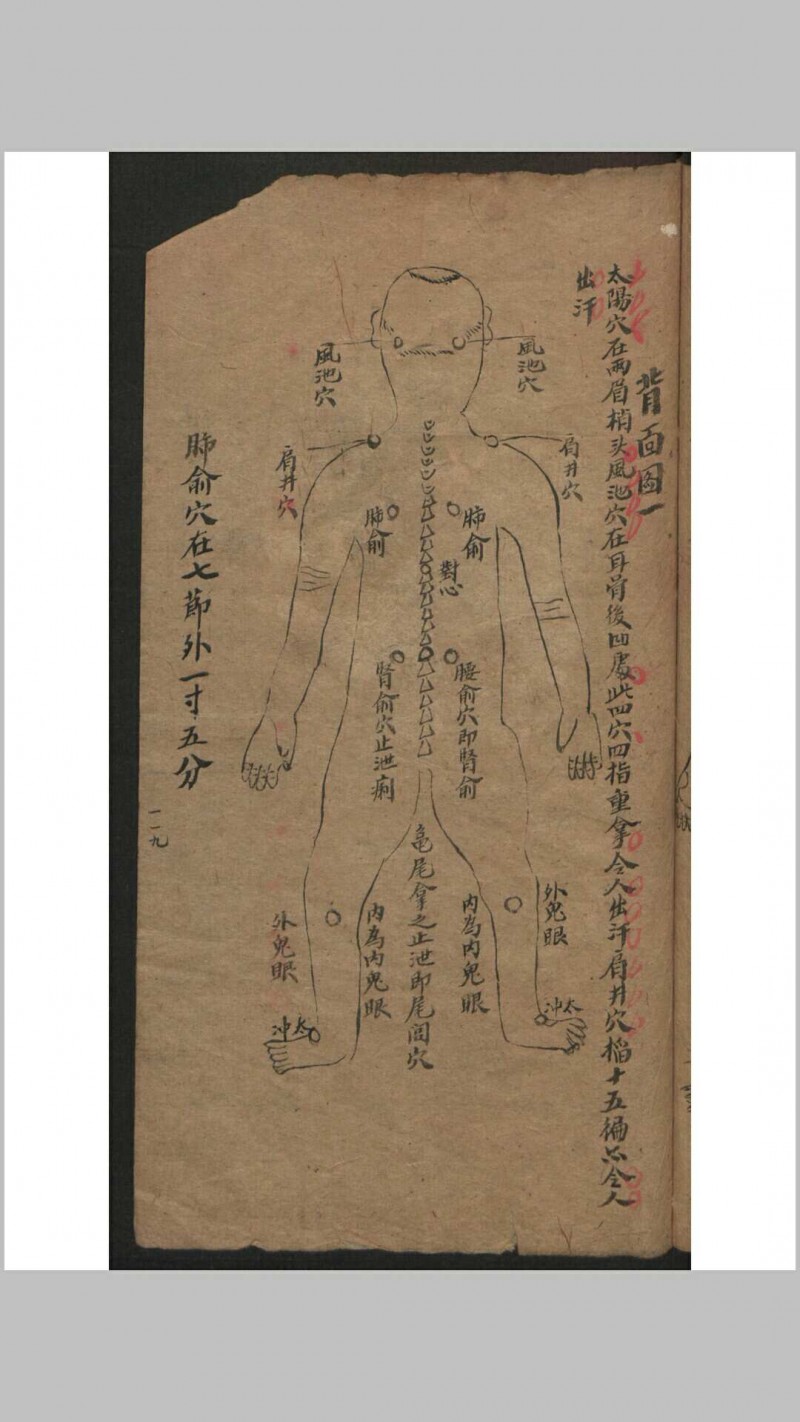 背面图一
太陽穴在兩眉梢头風池穴在耳骨後凹處此四穴四指重拿令人出汗肩井穴搯十五徧亦令人
出汗
風池穴
風池穴
肩井穴
肩井穴
肺俞
肺俞
對心
腰俞穴即腎俞
腎俞穴止泄痢
龟尾拿之止泄即尾闾穴
外鬼眼
內為內鬼眼
內為內鬼眼
外鬼眼
太冲
太冲
肺俞穴在七節外一寸五分
一一九